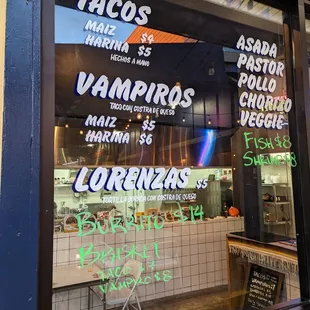 TACOS
MAIZ $4
HARINA $5
HECHOS A MANO
VAMPIROS
TACO CON COSTRA DE QUESO
MAIZ $5
HARINA $6
LORENZAS $5
TORTILLA CON COSTRA DE QUESO
BURRITO $14
TACO 7
VAMPIRO $8
ASADA
PASTOR
POLLO
CHORIZO
VEGGIE
FISH $8
SHRIMP $8